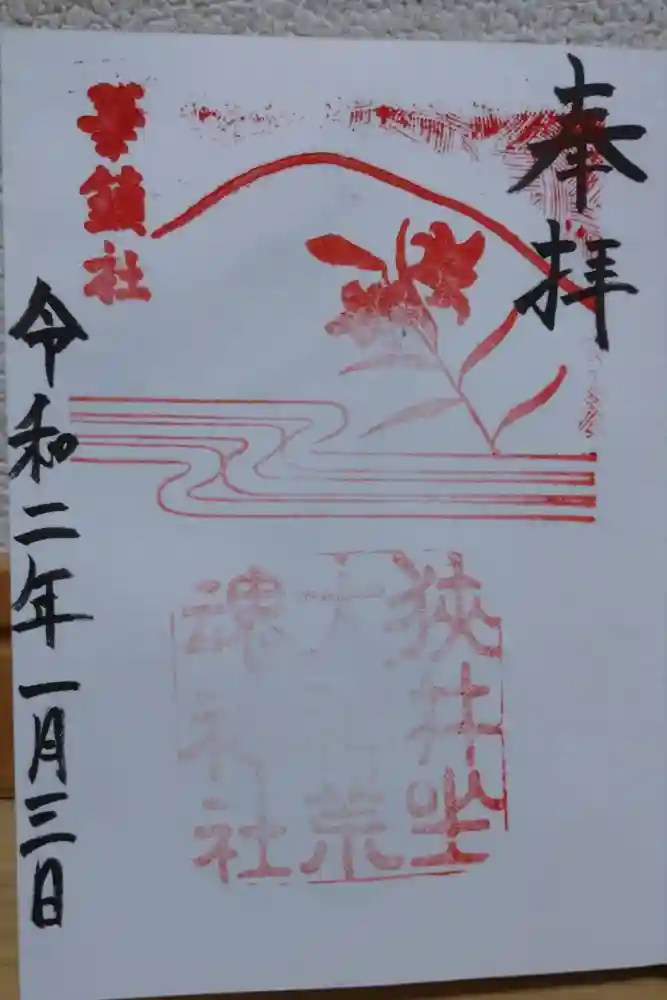 奉拝
華鎮社
狭井坐
大神荒
魂神社
令和二年一月三日